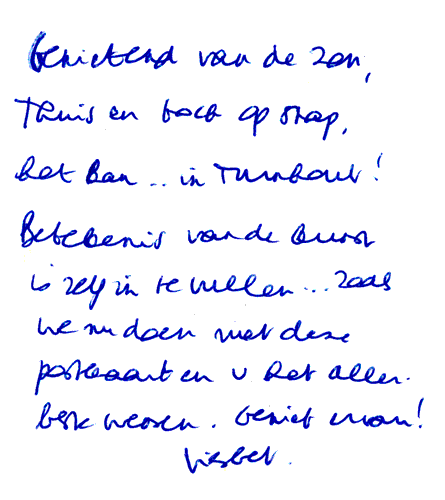 Genietend van de zon,
Thuis en toch op stap,
het kan .. in Turnhout!
Betekenis van de kunst
is zelf in te vullen ... zoals
we nu doen met deze
postkaart en u het aller-
beste wensen. Geniet ervan!
Liesbet.